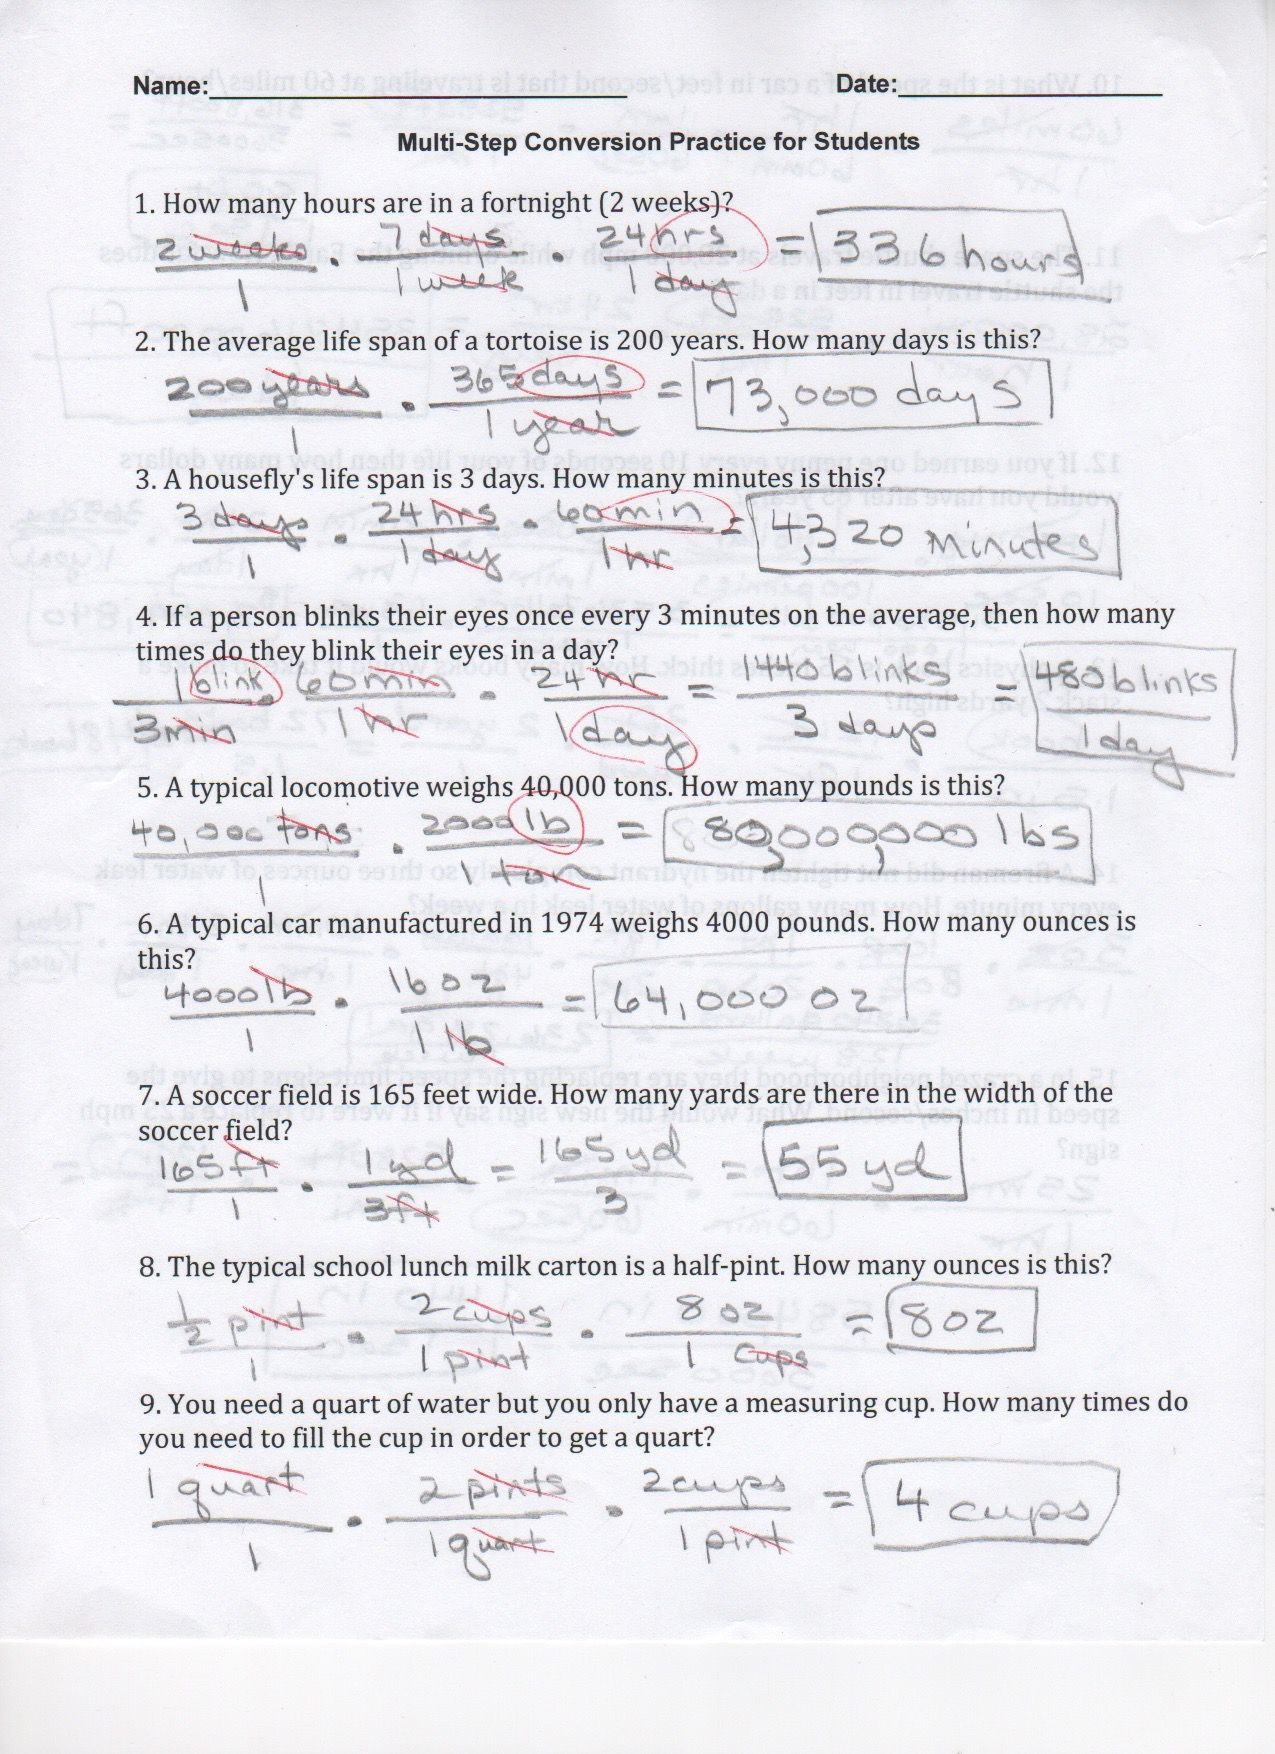 Name: Date:
Multi-Step Conversion Practice for Students
1. How many hours are in a fortnight (2 weeks)?
2 weeks/1 · 7 days/1 week · 24 hrs/1 day = 336 hours
2. The average life span of a tortoise is 200 years. How many days is this?
200 years/1 · 365 days/1 year = 73,000 days
3. A housefly's life span is 3 days. How many minutes is this?
3 days/1 · 24 hrs/1 day · 60 min/1 hr = 4,320 Minutes
4. If a person blinks their eyes once every 3 minutes on the average, then how many
times do they blink their eyes in a day?
1 blink/3 min · 60 min/1 hr · 24 hr/1 day = 1440 blinks/3 days = 480 blinks/1 day
5. A typical locomotive weighs 40,000 tons. How many pounds is this?
40,000 tons/1 · 2000 lb/1 ton = 80,000,000 lbs
6. A typical car manufactured in 1974 weighs 4000 pounds. How many ounces is
this?
4000 lb/1 · 16 oz/1 lb = 64,000 oz
7. A soccer field is 165 feet wide. How many yards are there in the width of the
soccer field?
165 ft/1 · 1 yd/3 ft = 165 yd/3 = 55 yd
8. The typical school lunch milk carton is a half-pint. How many ounces is this?
1/2 pint/1 · 2 cups/1 pint · 8 oz/1 cups = 8 oz
9. You need a quart of water but you only have a measuring cup. How many times do
you need to fill the cup in order to get a quart?
1 quart/1 · 2 pints/1 quart · 2 cups/1 pint = 4 cups